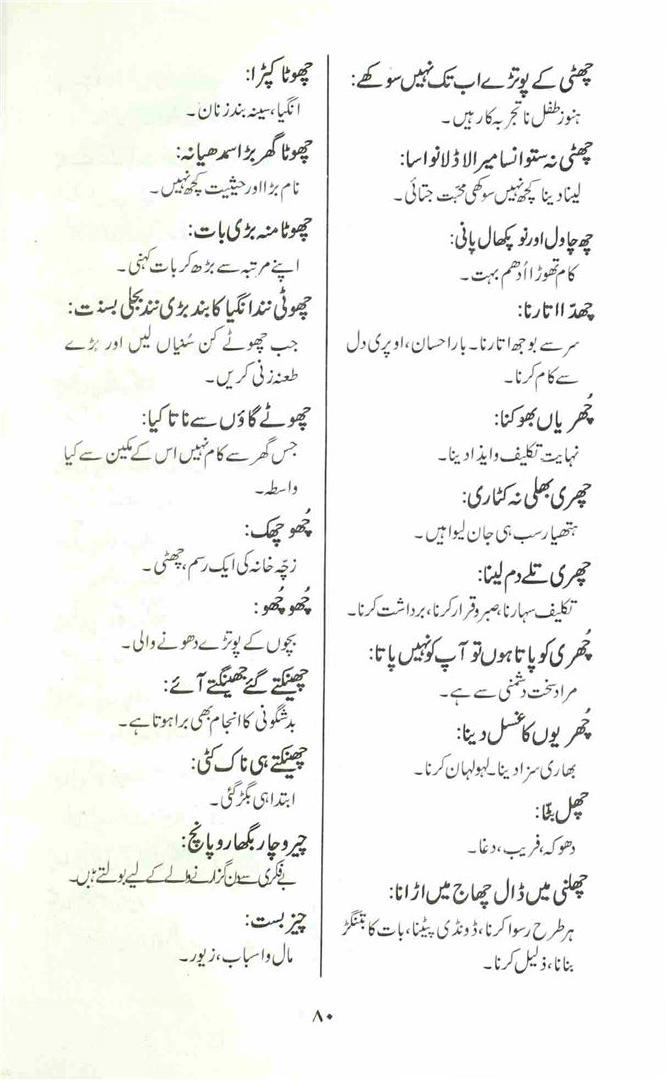 چھٹی کے پوتڑے اب تک نہیں سوکھے:
ہنوز طفل ناتجربہ کار ہیں۔
چھٹی نہ ستوانسا میرا لاڈلا نواسا:
لینا دینا کچھ نہیں سوکھی محبّت جتائی۔
چھ چاول اور نو پکھال پانی:
کام تھوڑا اُدھم بہت۔
چھدّا اتارنا:
سر سے بوجھ اتارنا۔ بار احسان، اوپری دل
سے کام کرنا۔
چُھریاں بھوکنا:
نہایت تکلیف و ایذا دینا۔
چھری بھلی نہ کٹاری:
ہتھیار سب ہی جان لیوا ہیں۔
چھری تلے دم لینا:
تکلیف سہارنا، صبر و قرار کرنا، برداشت کرنا۔
چُھری کو پاتا ہوں تو آپ کو نہیں پاتا:
مراد سخت دشمنی سے ہے۔
چُھریوں کا غسل دینا:
بھاری سزا دینا۔ لہولہان کرنا۔
چھل بٹّا:
دھوکہ، فریب، دغا۔
چھلنی میں ڈال چھاج میں اڑانا:
ہر طرح رسوا کرنا، ڈونڈی پیٹنا، بات کا بتنگڑ
بنانا، ذلیل کرنا۔
چھوٹا کپڑا:
انگیا، سینہ بند زنان۔
چھوٹا گھر بڑا سمدھیانہ:
نام بڑا اور حیثیت کچھ نہیں۔
چھوٹا منہ بڑی بات:
اپنے مرتبہ سے بڑھ کر بات کہنی۔
چھوٹی نند انگیا کا بند بڑی نند بجلی بسنت:
جب چھوٹے کن سُنیاں لیں اور بڑے
طعنہ زنی کریں۔
چھوٹے گاؤں سے ناتا کیا:
جس گھر سے کام نہیں اس کے مکین سے کیا
واسطہ۔
چُھوچھک:
زچّہ خانہ کی ایک رسم، چھٹی۔
چُھوچُھو:
بچوں کے پوتڑے دھونے والی۔
چھینکتے گئے جھینگتے آئے:
بدشگونی کا انجام بھی برا ہوتا ہے۔
چھینکتے ہی ناک کٹی:
ابتدا ہی بگڑ گئی۔
چیرو چار بگھارو پانچ:
بے فکری سے دن گزارنے والے کے لیے بولتے ہیں۔
چیز بست:
مال و اسباب، زیور۔
۸۰